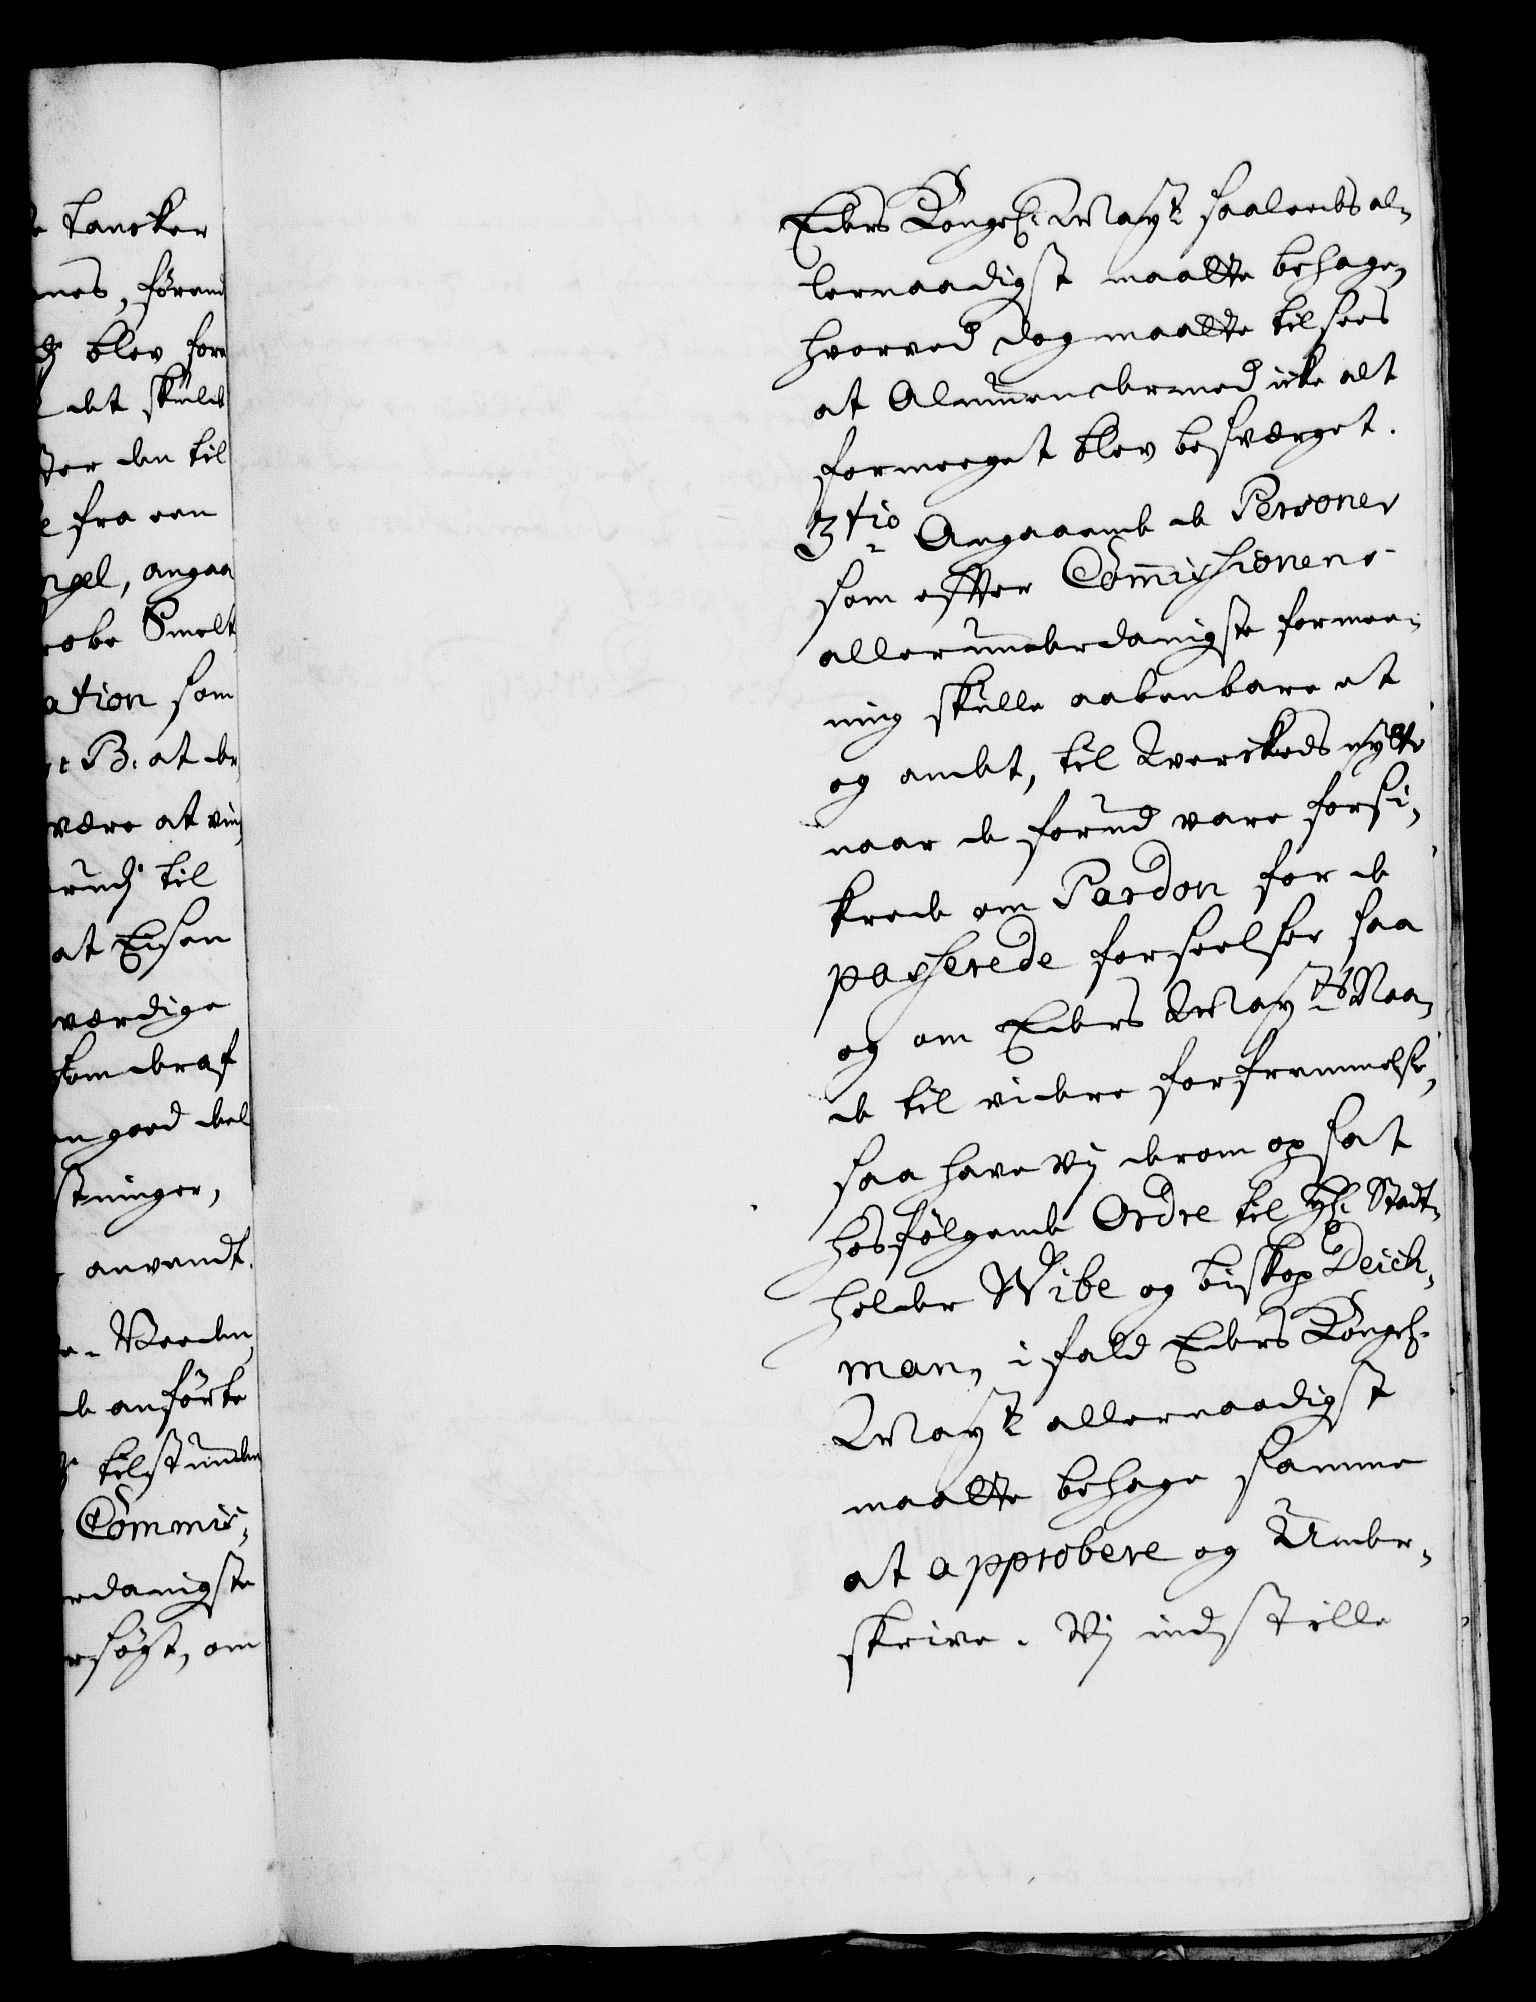 tancker
nes, förend
blev for¬
det skulde
ter den til
fra een
ngel, angaa
robe Smelt
ation som
B. at de
være at vin
rudj til
at Eisen
værdige
som deraf
n goed deel
stninger,
anvendt.
Veeden
de anförte
tilstunden
Commis¬
rdanigste
rsögt, om
Eders Kongel. Mayt saaleedes al¬
lernaadigst maatte behage,
hvorved dog maatte til sees
at Almuen dermed icke alt
formeeget blev besværget.
3tio Angaaende de Personer
som efter Commissionens
allerunderdanigste formee¬
ning skulle aabenbare et
og andet, til Werckeds nytte
naar de forud vare forsi¬
krede om Pardon for de
passerede forseelser saa
og om Eders Mayts Naa¬
de til videre forfremmelse,
saa have vj derom opsat
hosfölgende Ordre til H. Stadt¬
holder Wibe og biskop Deich¬
man, i fald Eders Kongel.
Mayt allernaadigst
maatte behage samme
at approbere og Under¬
skrive. Vj indstille